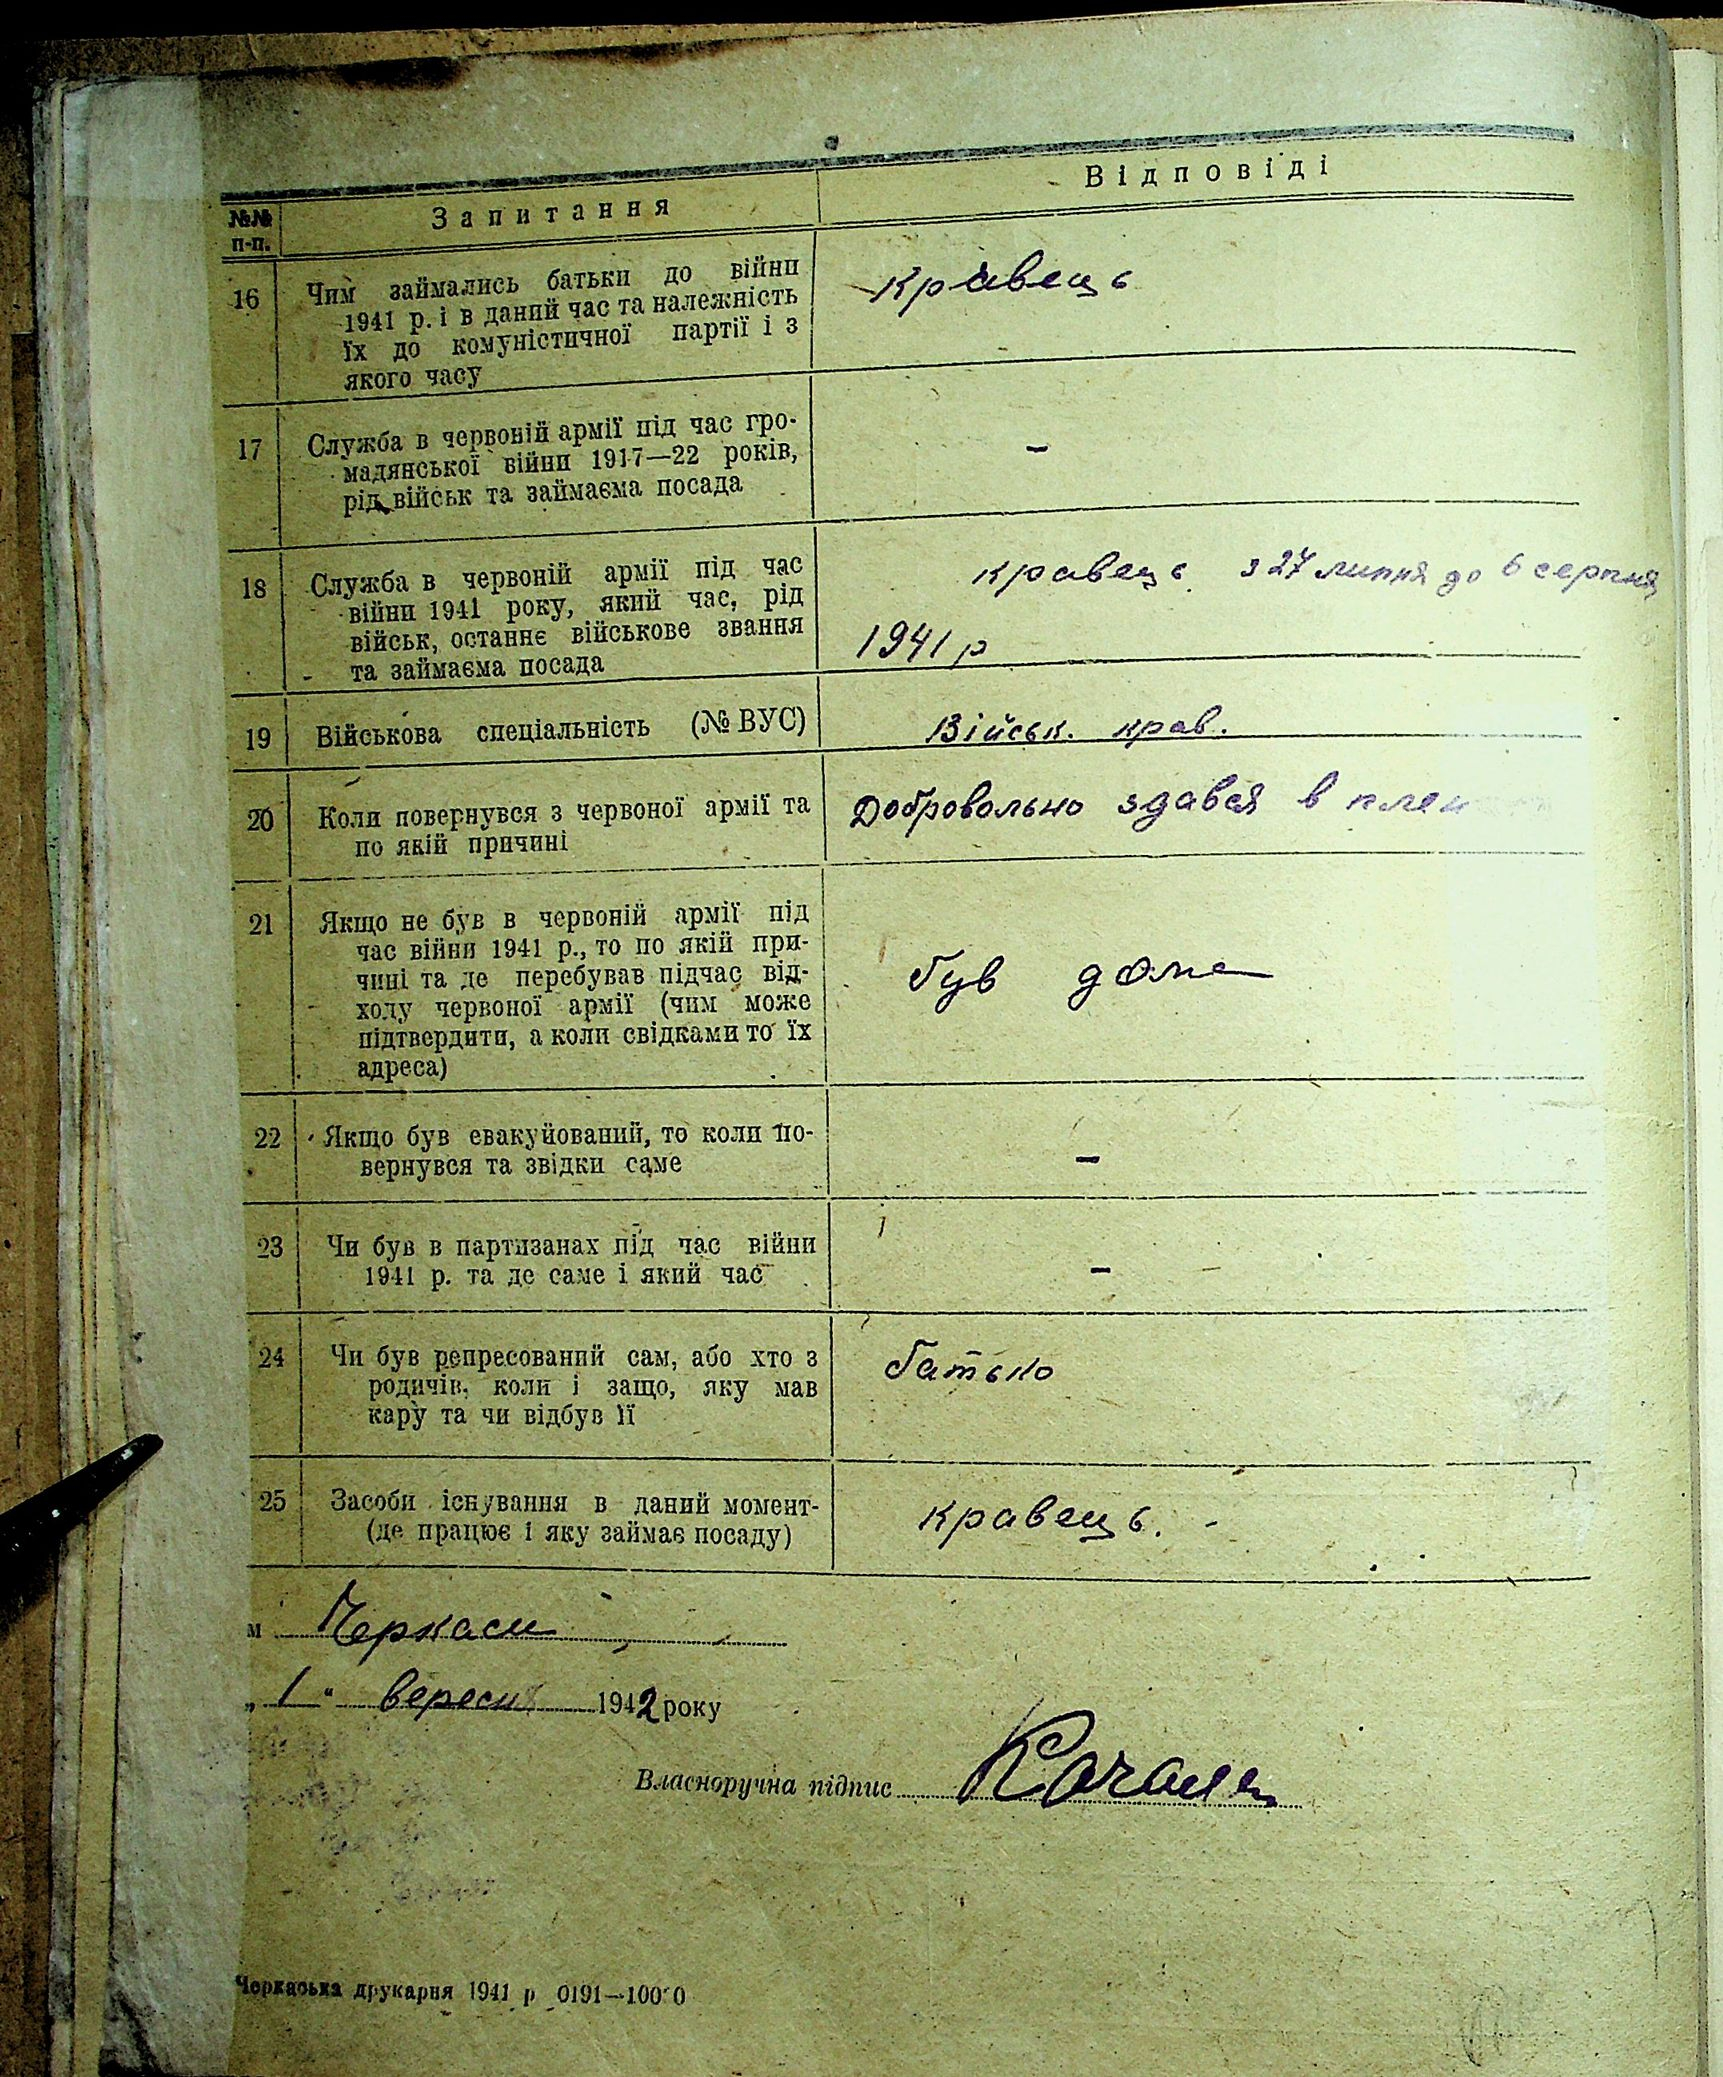 №№ п-п.
Запитання
Відповіді
16
Чим займались батьки до війни
1941 р. і в даний час та належність
їх до комуністичної партії і з
якого часу
кравець
17
Служба в червоній армії під час гро-
мадянської війни 1917—22 років,
рід військ та займаєма посада
-
18
Служба в червоній армії під час
війни 1941 року, який час, рід
військ, останнє військове звання
та займаєма посада
кравець з 27 липня до 6 серпня
1941 р
19
Військова спеціальність (№ ВУС)
Військ. крав.
20
Коли повернувся з червоної армії та
по якій причині
Добровольно здався в плен
21
Якщо не був в червоній армії під
час війни 1941 р., то по якій при-
чині та де перебував підчас від-
ходу червоної армії (чим може
підтвердити, а коли свідками то їх
адреса)
був дома
22
Якщо був евакуйований, то коли по-
вернувся та звідки саме
-
23
Чи був в партизанах під час війни
1941 р. та де саме і який час
-
24
Чи був репресований сам, або хто з
родичів, коли і защо, яку мав
кару та чи відбув її
батько
25
Засоби існування в даний момент-
(де працює і яку займає посаду)
кравець. -
м Черкаси
„ 1 " вересня 1942 року
Власноручна підпис
Черкаська друкарня 1941 р 0191—10000